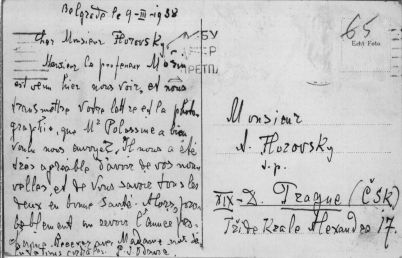 Belgrade le 9-III-1938
Cher Monsieur Florovsky,
Monsieur le professeur
est venu hier nous voir, et nous
transmettre votre lettre et la photo-
graphie, que Mr a bien
voulu nous envoyer. Il nous a été
très agréable d'avoir de vos nou-
velles, et de vous savoir tous les
deux en bonne santé. Alors,
au revoir l'année
Recevez avec Madame nos
65
Echt Foto
Monsieur
A. Florovsky
XIX-D. Prague (ČSR)
Třída Krale Alexandra 17.